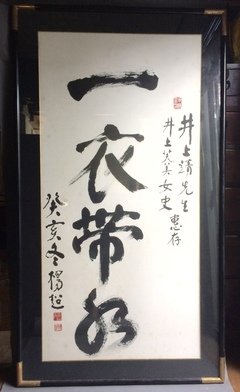 井上靖先生
井上芙美女史 惠存
一衣带水
癸亥冬 楊超